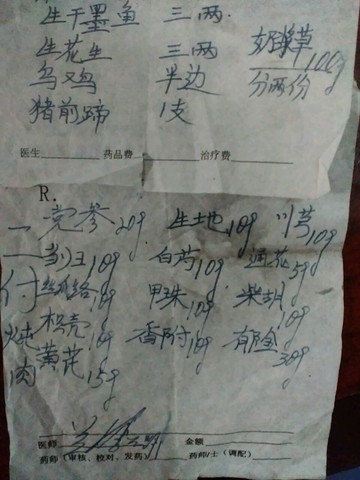 生干墨鱼 三两
生花生 三两 奶浆草100g
乌又鸡 半边 分两份
猪前蹄 1支
医生 药品费 治疗费
R.
党参20g 生地10g 川芎10g
当归10g 白芍10g 通花5g
丝瓜络10g 甲珠10g 柴胡10g
枳壳10g 香附10g 郁金30g
黄芪15g
一付炖肉
医师 金额
药师(审核、校对、发药) 药师/士(调配)